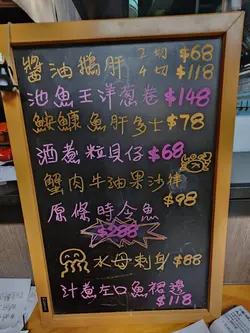 醬油鵝肝 2切 $68
4切 $118
池魚王洋葱卷 $148
鮟鱇魚肝多士 $78
酒煮粒貝仔 $68
蟹肉牛油果沙律
$98
原條時令魚
$288
水母刺身 $88
汁煮左口魚裙邊
$118